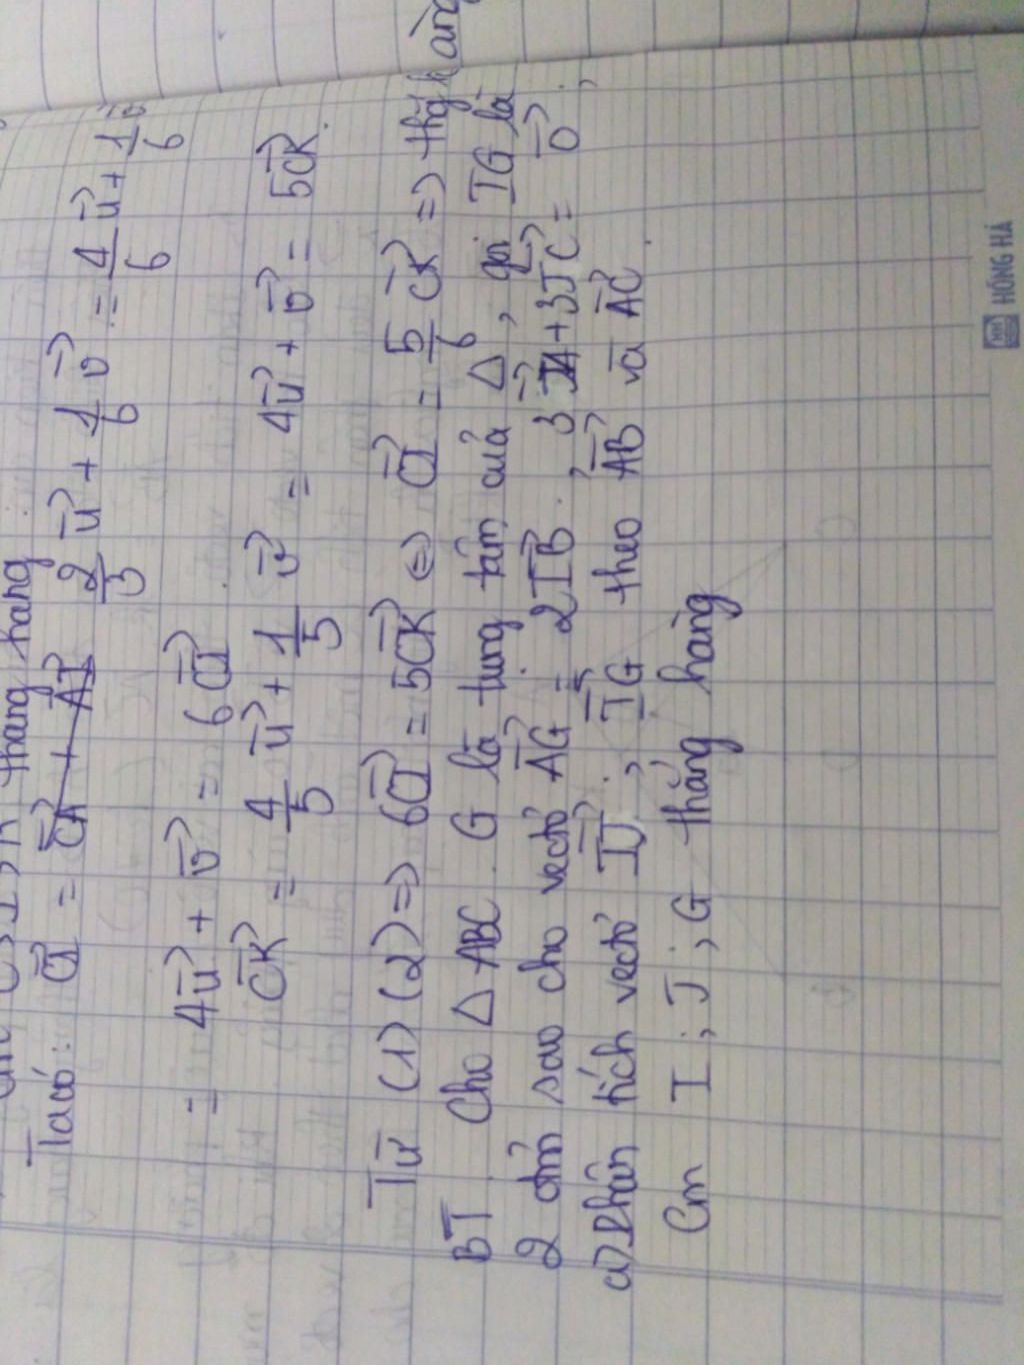 thẳng hàng
Ta có: CI⃗ = CA⃗ + AI⃗ 2/3 u⃗ + 1/6 v⃗ = 4/6 u⃗ + 1/6 v⃗
= 4u⃗ + v⃗ = 6CI⃗
CK⃗ = 4/5 u⃗ + 1/5 v⃗ = 4u⃗ + v⃗ = 5CK⃗.
Từ (1) (2) => 6CI⃗ = 5CK⃗ <=> CI⃗ = 5/6 CK⃗ => thẳng hàng
BT. Cho △ ABC. G là trung tâm của △, gọi IG là
2 đm sao cho vectơ AG⃗ = 2IB⃗. , 3 JA⃗ + 3JC⃗ = 0⃗,
a) Phân tích vectơ IJ⃗; IG⃗ theo AB⃗ và AC⃗.
Cm I; J; G thẳng hàng
HỒNG HÀ